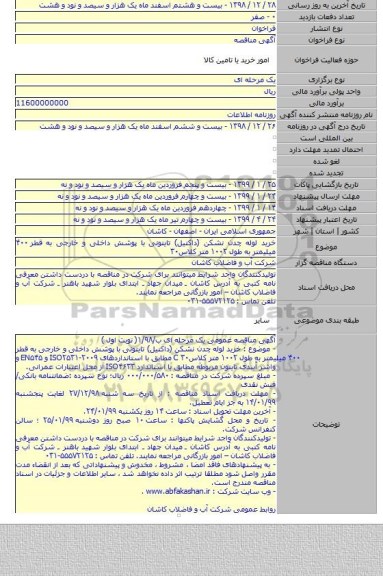 تاریخ آخرین به روز رسانی
۲۸ / ۱۲ / ۱۳۹۸ - بیست و هشتم اسفند ماه یک هزار و سیصد و نود و هشت
تعداد دفعات بازدید
۰ - صفر
نوع انتشار
فراخوان
نوع فراخوان
آگهی مناقصه
حوزه فعالیت فراخوان
امور خرید یا تامین کالا
نوع برگزاری
یک مرحله ای
واحد پولی برآورد مالی
ریال
برآورد مالی
11600000000
نام روزنامه منتشر کننده آگهی
روزنامه اطلاعات
تاریخ درج آگهی در روزنامه
۲۶ / ۱۲ / ۱۳۹۸ - بیست و ششم اسفند ماه یک هزار و سیصد و نود و هشت
بین المللی است
احتمال تمدید مهلت دارد
لغو شده
تجدید شده
تاریخ بازگشایی پاکات
۲۵ / ۱ / ۱۳۹۹ - بیست و پنجم فروردین ماه یک هزار و سیصد و نود و نه
مهلت ارسال پیشنهاد
۲۴ / ۱ / ۱۳۹۹ - بیست و چهارم فروردین ماه یک هزار و سیصد و نود و نه
مهلت دریافت اسناد
۱۴ / ۱ / ۱۳۹۹ - چهاردهم فروردین ماه یک هزار و سیصد و نود و نه
تاریخ اعتبار پیشنهاد
۲۴ / ۴ / ۱۳۹۹ - بیست و چهارم تیر ماه یک هزار و سیصد و نود و نه
کشور | استان | شهر
جمهوری اسلامی ایران - اصفهان - کاشان
موضوع
خرید لوله چدن نشکن (داکتیل) تایتونی با پوشش داخلی و خارجی به قطر ۴۰۰
میلیمتر به طول ۱۰۰۲ متر کلاس۳۰
دستگاه مناقصه گزار
شرکت آب و فاضلاب کاشان
محل دریافت اسناد
تولیدکنندگان واجد شرایط میتوانند برای شرکت در مناقصه با دردست داشتن معرفی
نامه کتبی به آدرس کاشان ـ میدان جهاد ـ ابتدای بلوار شهید باهنر ـ شرکت آب و
فاضلاب کاشان – امور بازرگانی مراجعه نمایند.
تلفن تماس : ۵۵۵۷۲۱۲۵-۰۳۱
طبقه بندی موضوعی
سایر
توضیحات
آگهی مناقصه عمومی یک مرحله ای ب/۱/۹۸( نوبت اول )
- موضوع : خرید لوله چدن نشکن (داکتیل) تایتونی با پوشش داخلی و خارجی به قطر
۴۰۰ میلیمتر به طول ۱۰۰۲ متر کلاس C ۳۰ مطابق با استانداردهای ISO۲۵۳۱-۲۰۰۹ و EN۵۴۵ و
واشر آببندی تایتون مربوطه مطابق با استاندارد ISO۴۶۳۳ از محل اعتبارات عمرانی.
- مبلغ سپرده شرکت در مناقصه : ۵۸۰/۰۰۰/۰۰۰ ریال؛ نوع سپرده :ضمانتنامه بانکی/
فیش نقدی
- مهلت دریافت اسناد مناقصه : از تاریخ سه شنبه ۲۷/۱۲/۹۸ لغایت پنجشنبه
۱۴/۰۱/۹۹ به جز ایام تعطیل.
- آخرین مهلت تحویل اسناد : ساعت ۱۴ روز یکشنبه ۲۴/۰۱/۹۹.
- تاریخ و محل گشایش پاکتها : ساعت ۱۰ صبح روز دوشنبه ۲۵/۰۱/۹۹ ؛ سالن
کنفرانس شرکت.
- تولیدکنندگان واجد شرایط میتوانند برای شرکت در مناقصه با دردست داشتن معرفی
نامه کتبی به آدرس کاشان ـ میدان جهاد ـ ابتدای بلوار شهید باهنر ـ شرکت آب و
فاضلاب کاشان – امور بازرگانی مراجعه نمایند. تلفن تماس : ۵۵۵۷۲۱۲۵-۰۳۱
- به پیشنهادهای فاقد امضا ، مشروط ، مخدوش و پیشنهاداتی که بعد از انقضاء مدت
مقرر واصل شود مطلقا ترتیب اثر داده نخواهد شد . سایر اطلاعات و جزئیات در اسناد
مناقصه مندرج است.
- وب سایت شرکت : www.abfakashan.ir .
روابط عمومی شرکت آب و فاضلاب کاشان
ParsNamadData